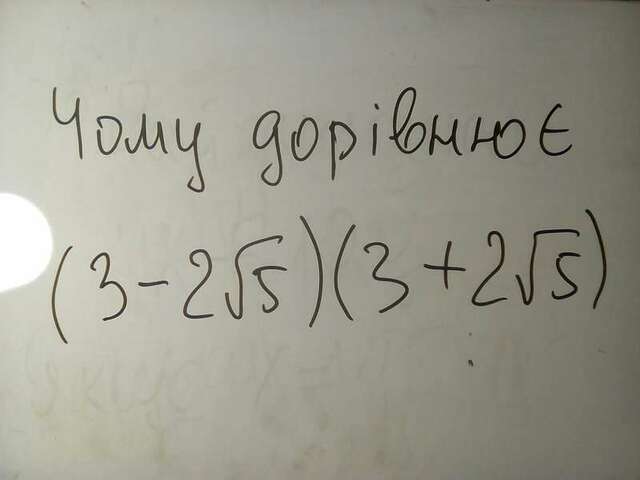 Чому дорівнює
(3-2√5)(3+2√5)